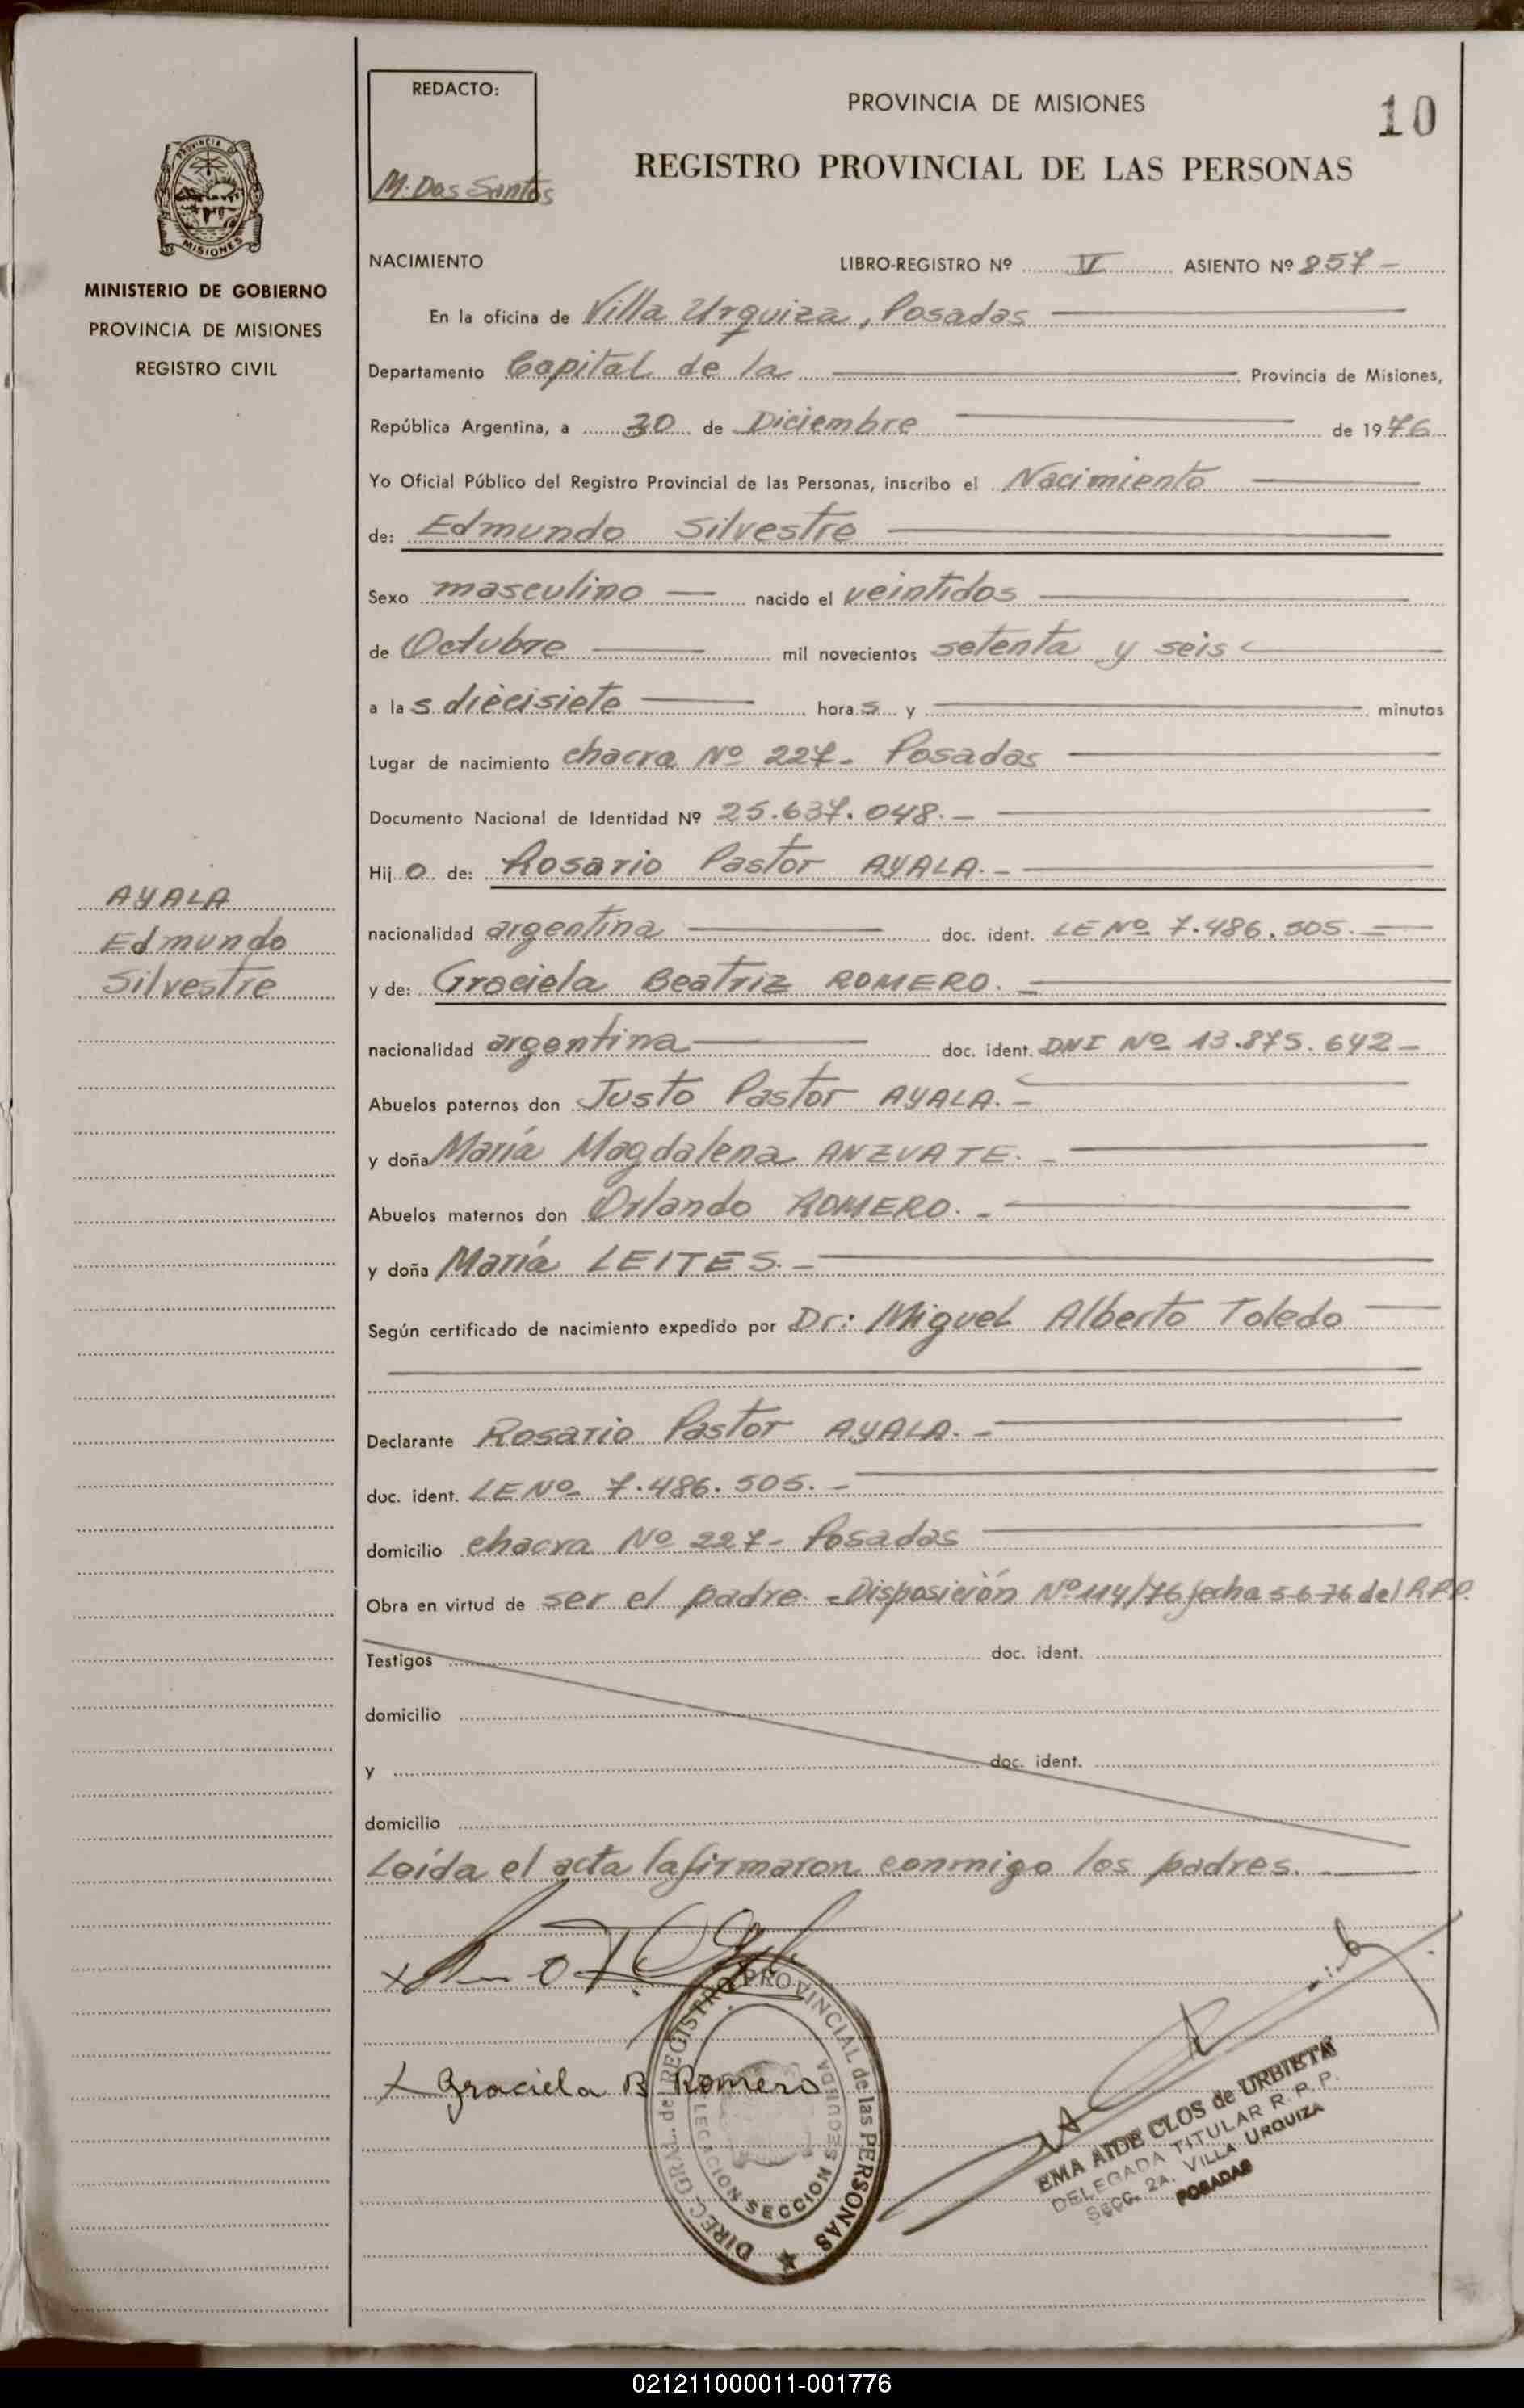 REDACTO:
M. Dos Santos
PROVINCIA DE MISIONES
10
REGISTRO PROVINCIAL DE LAS PERSONAS
PROVINCIA DE
MISIONES
MINISTERIO DE GOBIERNO
PROVINCIA DE MISIONES
REGISTRO CIVIL
NACIMIENTO LIBRO-REGISTRO Nº V ASIENTO Nº 857-
En la oficina de Villa Urquiza, Posadas
Departamento Capital de la Provincia de Misiones,
República Argentina, a 30 de Diciembre de 1976
Yo Oficial Público del Registro Provincial de las Personas, inscribo el Nacimiento
de: Edmundo Silvestre
Sexo masculino nacido el veintidos
de Octubre mil novecientos setenta y seis
a las diecisiete horas y minutos
Lugar de nacimiento chacra Nº 227- Posadas
Documento Nacional de Identidad Nº 25.637.048.-
Hijo de: Rosario Pastor AYALA.-
AYALA
Edmundo
Silvestre
nacionalidad argentina doc. ident. LE Nº 7.486.505.-
y de: Graciela Beatriz ROMERO.-
nacionalidad argentina doc. ident. DNI Nº 13.875.642-
Abuelos paternos don Justo Pastor AYALA.-
y doña María Magdalena ANZUATE.-
Abuelos maternos don Orlando ROMERO.-
y doña María LEITES.-
Según certificado de nacimiento expedido por Dr: Miguel Alberto Toledo
Declarante Rosario Pastor AYALA.-
doc. ident. LE Nº 7.486.505.-
domicilio chacra Nº 227- Posadas
Obra en virtud de ser el padre.-Disposición Nº 114/76 fecha 5-6-76 del R.P.P.
Testigos doc. ident.
domicilio
y doc. ident.
domicilio
Leída el acta la firmaron conmigo los padres.-
x Graciela B Romero
DIREC. GRAL. del REGISTRO PROVINCIAL de las PERSONAS
DELEGACION SECCION SEGUNDA
EMA AIDE CLOS de URBIETA
DELEGADA TITULAR R. P. P.
SECC. 2A. VILLA URQUIZA
POSADAS
021211000011-001776